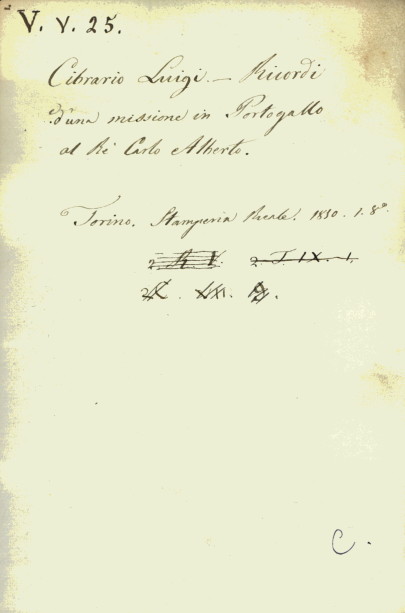 V. V. 25.
Cibrario Luigi. — Ricordi
d'una missione in Portogallo
al Rè Carlo Alberto.
Torino. Stamperia Reale. 1850. 1. 8°.
2. T. IX. 1.
C.